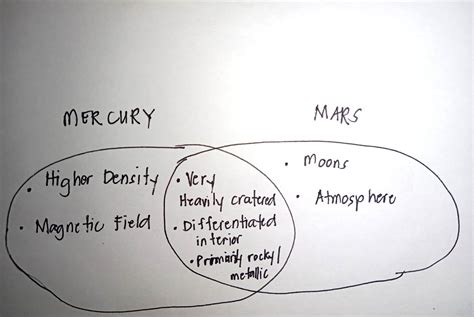 MERCURY
MARS
• Higher Density
• Magnetic Field
• Very
Heavily cratered
• Differentiated
interior
• Primarily rocky/
metallic
• Moons
• Atmosphere